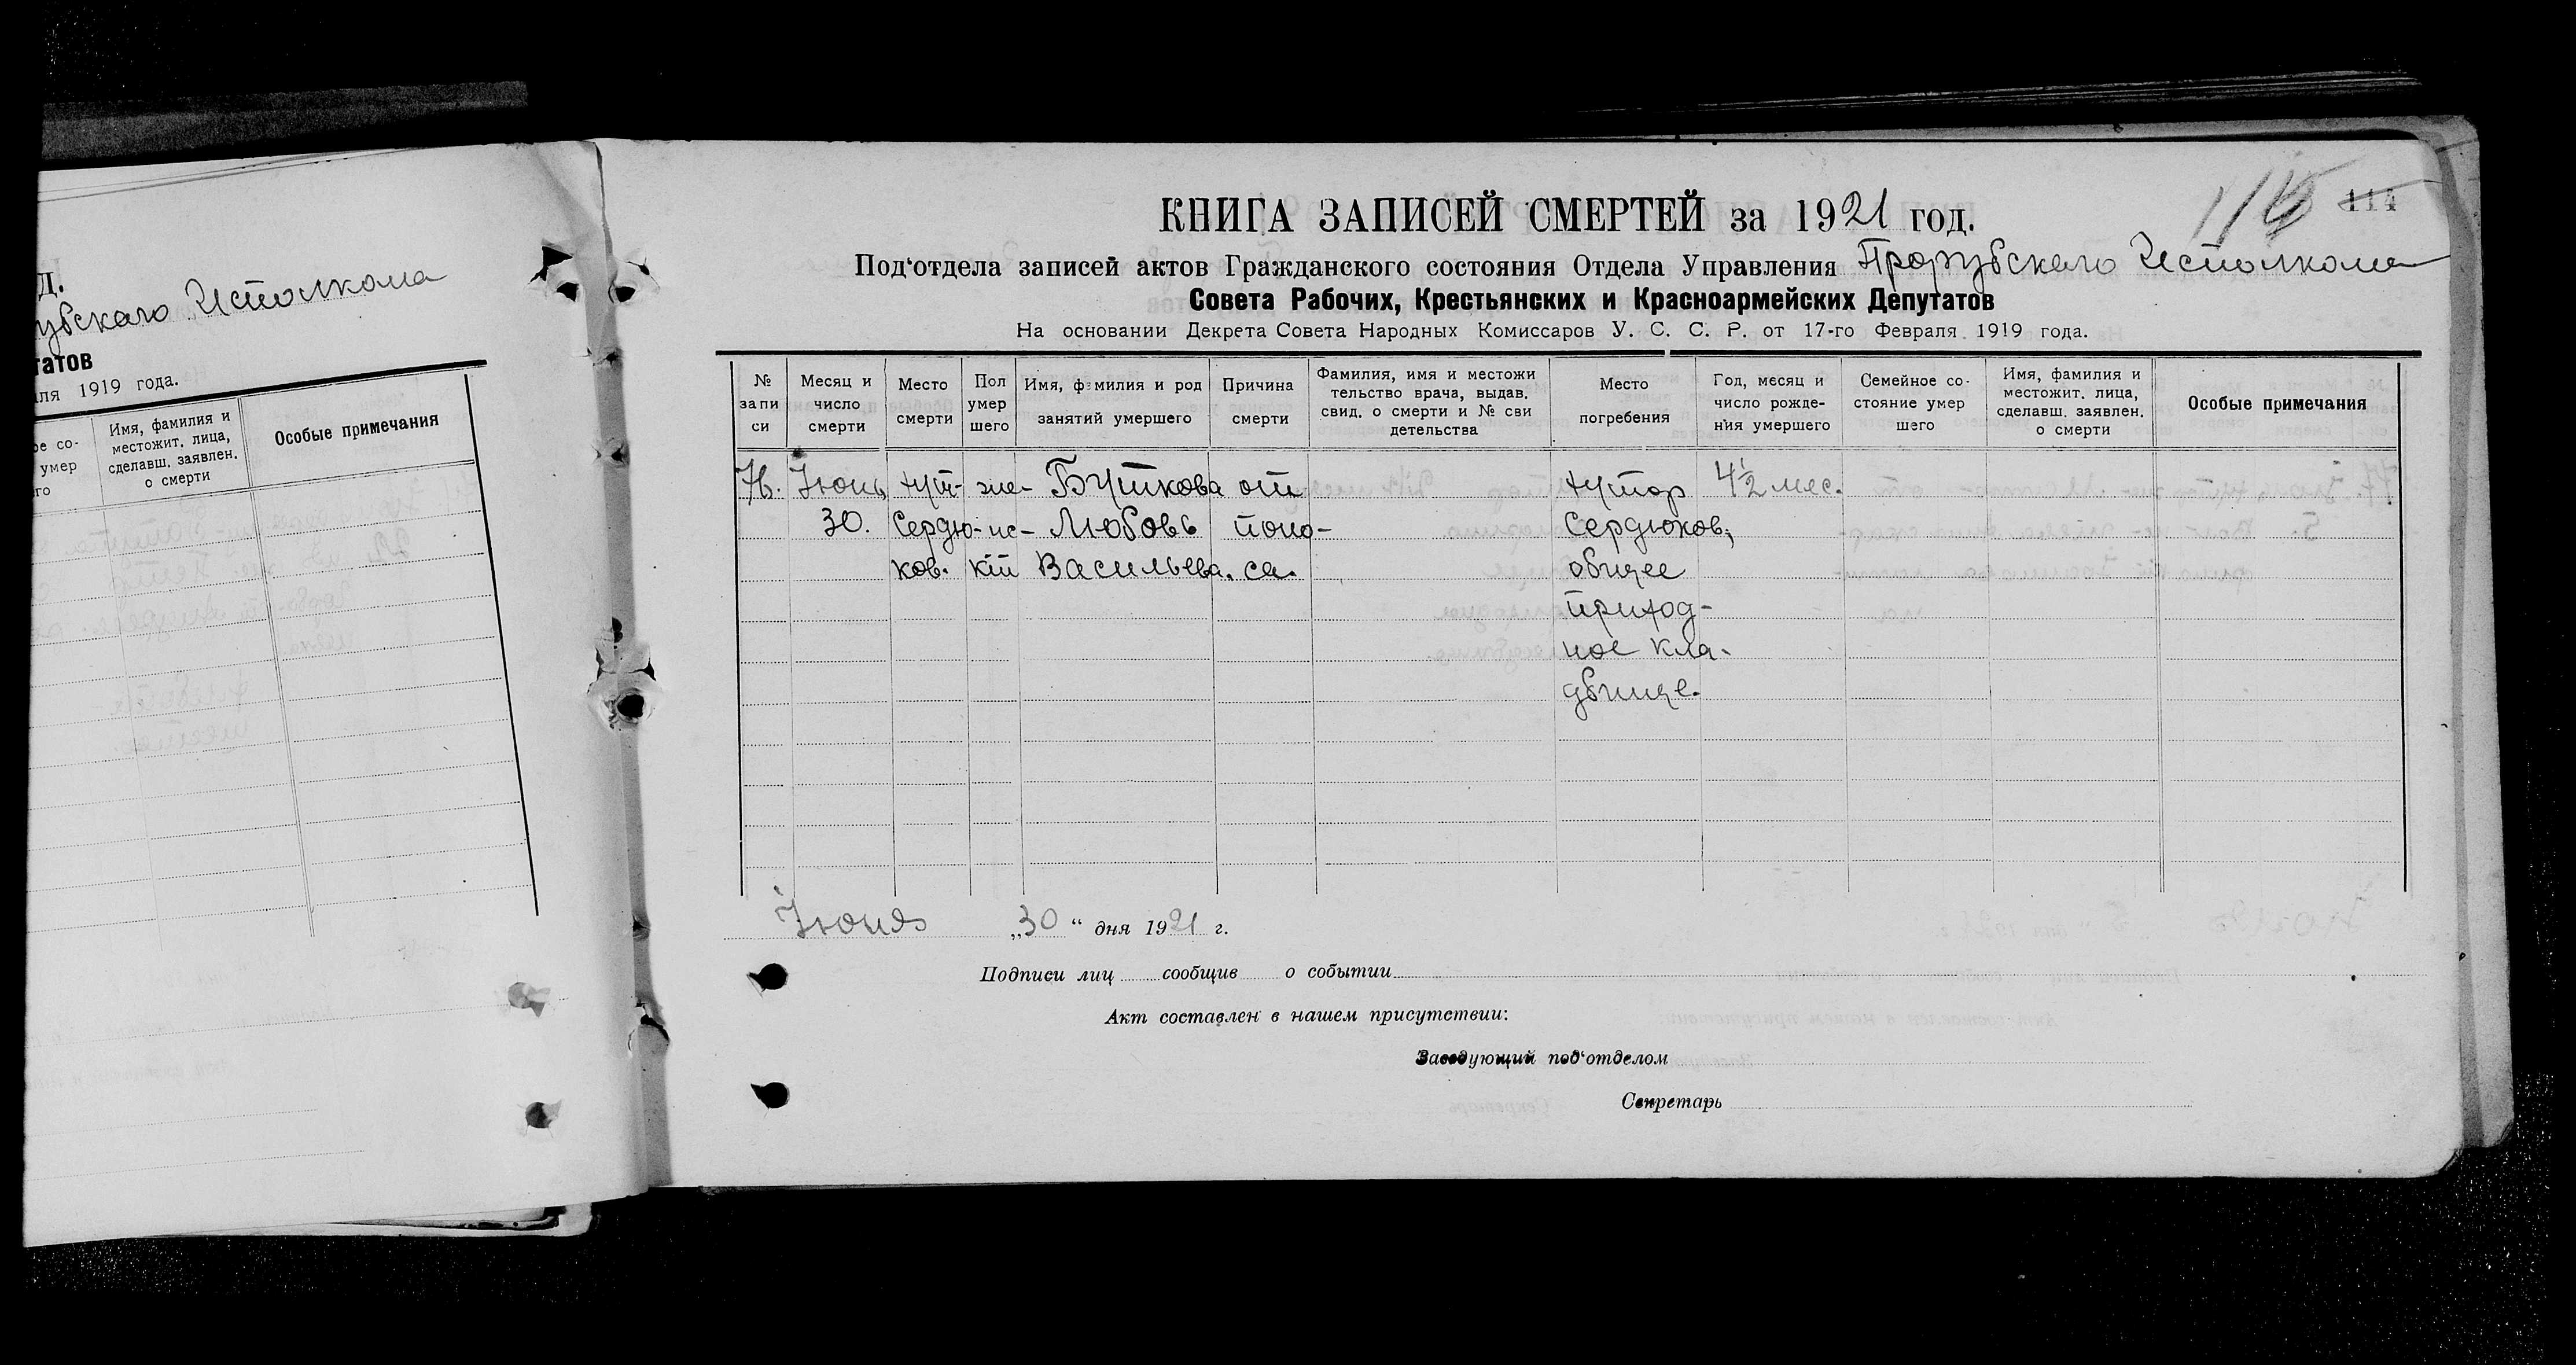 д.
убскаго Исполкома
татов
ля 1919 года.
ое со-
умер
го
Имя, фамилия и
местожит. лица,
сделавш. заявлен.
о смерти
Особые примечания
114
КНИГА ЗАПИСЕЙ СМЕРТЕЙ за 1921 год.
Под'отдела записей актов Гражданского состояния Отдела Управления Прорубскаго Исполкома
Совета Рабочих, Крестьянских и Красноармейских Депутатов
На основании Декрета Совета Народных Комиссаров У. С. С. Р. от 17-го Февраля 1919 года.
№
запи
си
Месяц и
число
смерти
Место
смерти
Пол
умер
шего
Имя, фамилия и род
занятий умершего
Причина
смерти
Фамилия, имя и местожи
тельство врача, выдав.
свид. о смерти и № сви
детельства
Место
погребения
Год, месяц и
число рожде-
ния умершего
Семейное со-
стояние умер
шего
Имя, фамилия и
местожит. лица,
сделавш. заявлен.
о смерти
Особые примечания
76.
Июнь
30.
хут-
Сердю-
ков.
же-
нс-
кій
Буткова
Любовь
Васильева.
от
поно-
са.
хутор
Сердюков,
общее
приход-
ное кла-
дбище.
4½ мес.
Июня „30“ дня 1921 г.
Подписи лиц сообщив о событии
Акт составлен в нашем присутствии:
Заведующий под'отделом
Секретарь